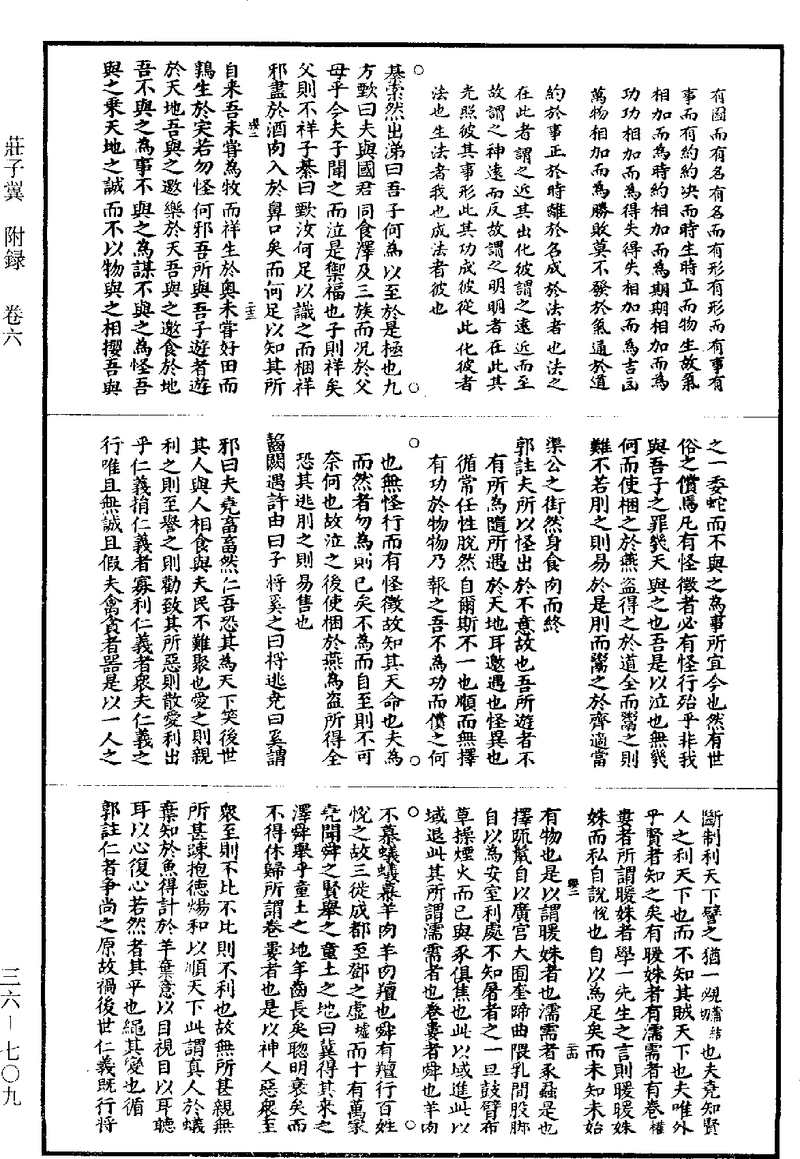 有圖而有名有名而有形有形而有事有
事而有約約決而時生時立而物生故氣
相加而為時約相加而為期期相加而為
功功相加而為得失得失相加而為吉凶
萬物相加而為勝敗莫不發於氣通於道
約於事正於時離於名成於法者也法之
在此者謂之近其出化彼謂之遠近而至
故謂之神遠而反故謂之明明者在此其
光照彼其事形此其功成彼從此化彼者
法也生法者我也成法者彼也
綦索然出涕曰吾子何為以至於是極也九
方歅曰夫與國君同食澤及三族而况於父
母乎今夫子聞之而泣是禦福也子則祥矣
父則不祥子綦曰歅汝何足以識之而梱祥
邪盡於酒肉入於鼻口矣而何足以知其所
自来吾未嘗為牧而牂生於奥未嘗好田而
鶉生於宎若勿怪何邪吾所與吾子遊者遊
於天地吾與之邀樂於天吾與之邀食於地
吾不與之為事不與之為謀不與之為怪吾
與之乗天地之誠而不以物與之相攖吾與
之一委蛇而不與之為事所宜今也然有世
俗之償焉凡有怪徵者必有怪行殆乎非我
與吾子之罪幾天與之也吾是以泣也無幾
何而使梱之於燕盗得之於道全而鬻之則
難不若刖之則易於是刖而鬻之於齊適當
渠公之街然身食肉而終
郭註夫所以怪出於不意故也吾所遊者不
有所為隨所遇於天地耳邀遇也怪異也
循常任性脫然自爾斯不一也順而無擇
有功於物物乃報之吾不為功而償之何
也無怪行而有怪徵故知其天命也夫為
而然者勿為則已矣不為而自至則不可
奈何也故泣之後使梱於燕為盗所得全
恐其逃刖之則易售也
齧闕遇許由曰子將奚之曰將逃堯曰奚謂
邪曰夫堯畜畜然仁吾恐其為天下笑後世
其人與人相食與夫民不難聚也愛之則親
利之則至譽之則勸致其所惡則散愛利出
乎仁義捐仁義者寡利仁義者衆夫仁義之
行唯且無誠且假夫禽貪者器是以一人之
斷制利天下譬之猶一覕也夫堯知賢
人之利天下也而不知其賊天下也夫唯外
乎賢者知之矣有暖姝者有濡需者有卷
婁者所謂暖姝者學一先生之言則暖暖姝
姝而私自說悅也自以為足矣而未知未始
有物也是以謂暖姝者也濡需者豕蝨是也
擇疏鬣自以廣宫大囿奎蹄曲隈乳間股脚
自以為安室利處不知屠者之一旦鼓臂布
草操煙火而已與豕俱焦也此以域進此以
域退此其所謂濡需者也卷婁者舜也羊肉
不慕蟻蟻慕羊肉羊肉羶也舜有羶行百姓
悅之故三徙成都至鄧之虚墟而十有萬家
堯聞舜之賢舉之童土之地曰冀得其来之
澤舜舉乎童土之地年齒長矣聰明衰矣而
不得休歸所謂卷婁者也是以神人惡衆至
衆至則不比不比則不利也故無所甚親無
所甚疎抱德煬和以順天下此謂真人於蟻
棄知於魚得計於羊棄意以目視目以耳聽
耳以心復心若然者其平也繩其變也循
郭註仁者争尚之原故禍後世仁義既行將
莊子翼 附録 卷六
三六—七〇九